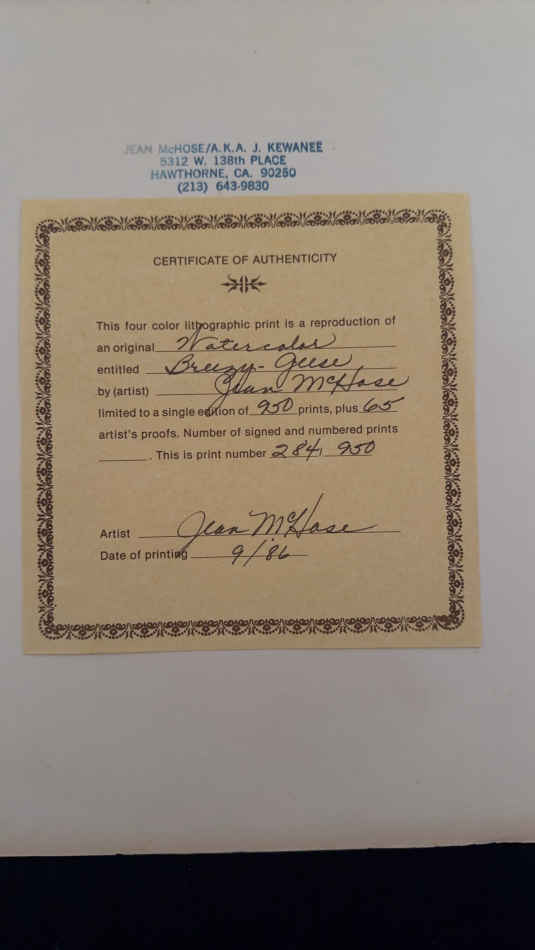 JEAN McHOSE/A.K.A. J. KEWANEE
5312 W. 138th PLACE
HAWTHORNE, CA. 90250
(213) 643-9830
CERTIFICATE OF AUTHENTICITY
This four color lithographic print is a reproduction of
an original Watercolor
entitled Breezy-Geese
by (artist) Jean McHose
limited to a single edition of 950 prints, plus 65
artist's proofs. Number of signed and numbered prints
. This is print number 284, 950
Artist Jean McHose
Date of printing 9/'86